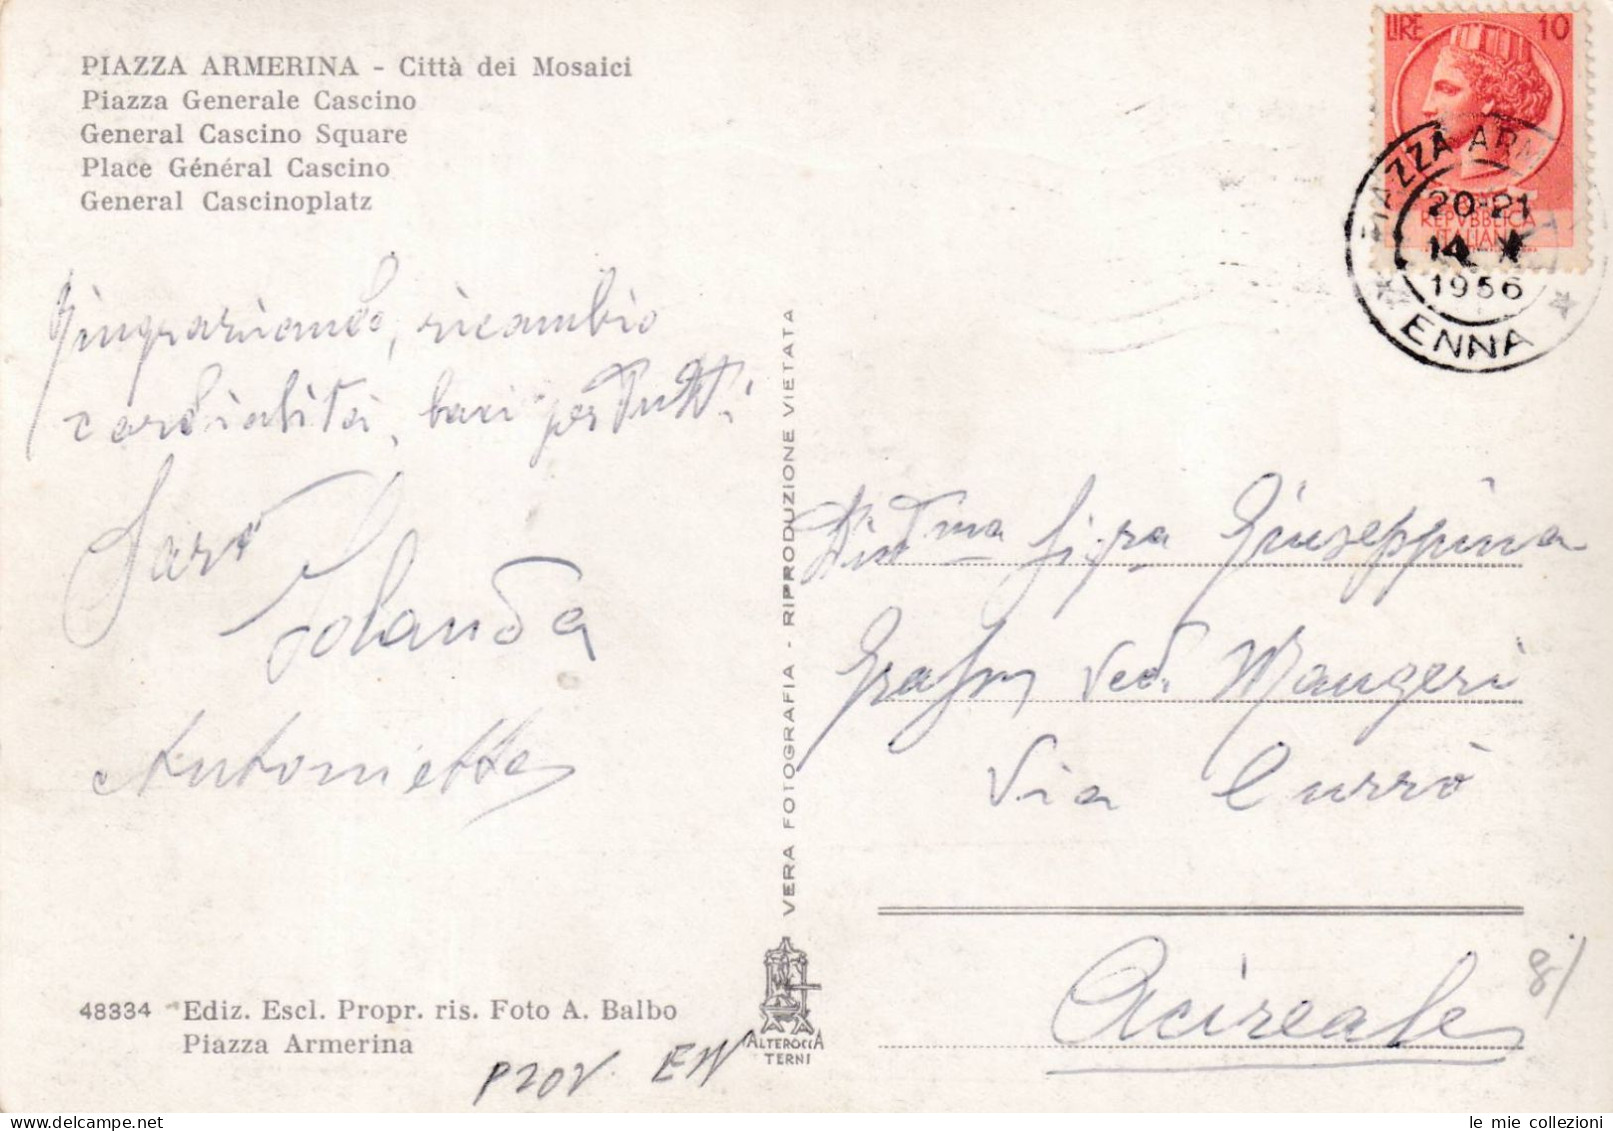 PIAZZA ARMERINA - Città dei Mosaici
Piazza Generale Cascino
General Cascino Square
Place Général Cascino
General Cascinoplatz
LIRE 10
REPVBBLICA
ITALIANA
PIAZZA ARMERINA
20-21
14
1956
ENNA
Ringraziando, ricambio
cordialità, baci per tutti
Sarò
Jolanda
Antonietta
VERA FOTOGRAFIA - RIPRODUZIONE VIETATA
Giuseppina
Ved. Mangeri
Via Currò
Acireale
8/
48334 Ediz. Escl. Propr. ris. Foto A. Balbo
Piazza Armerina
ALTEROCCA
TERNI
PROV. EN
le mie collezioni